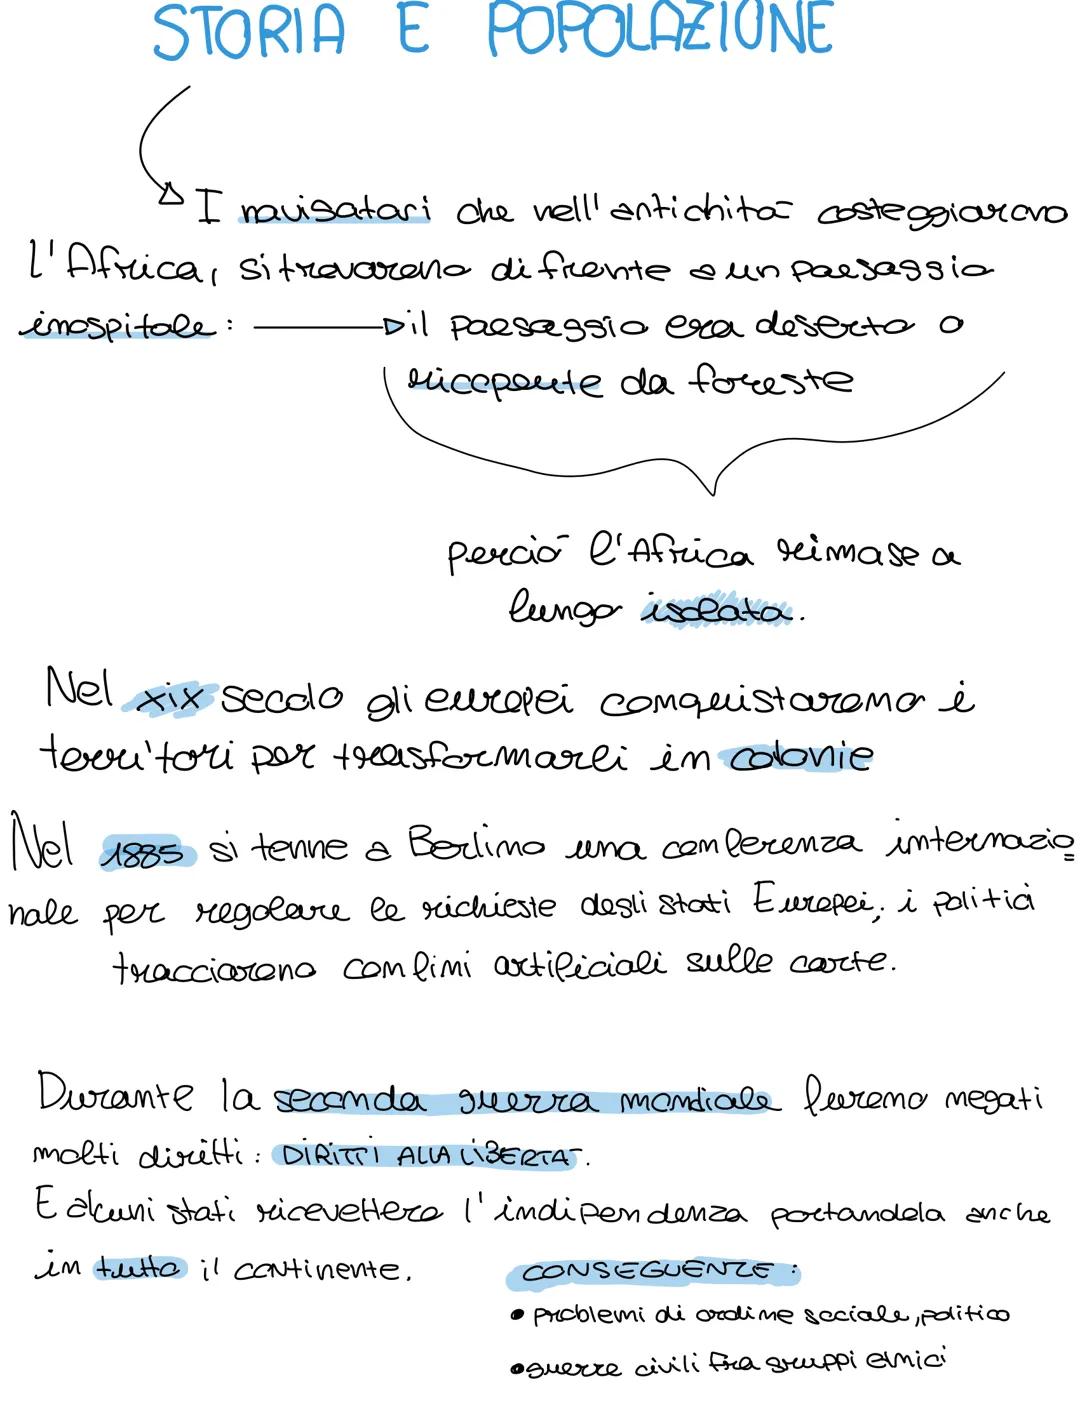 STORIA E POPOLAZIONE
I navigatori che nell'antichità costeggiarono
l'Africa, si trovarono di frente a un paesaggio
inospitale: il paesaggio era deserto o
ricoperte da foreste
perciò l'Africa rimase a
lungo isolata.
Nel xix secolo gli europei conquistarono i
territori per trasformarli in colonie
Nel 1885 si tenne a Berlino una conferenza internazio
nale per regolare le richieste degli stati Europei; i politici
tracciarono confini artificiali sulle carte.
Durante la seconda guerra mondiale furono negati
molti diritti: DIRITTI ALLA LIBERTÀ.
E alcuni stati ricevettero l'indipendenza portandola anche
in tutto il continente.
CONSEGUENZE:
• problemi di ordine sociale, politico
• guerre civili fra gruppi etnici